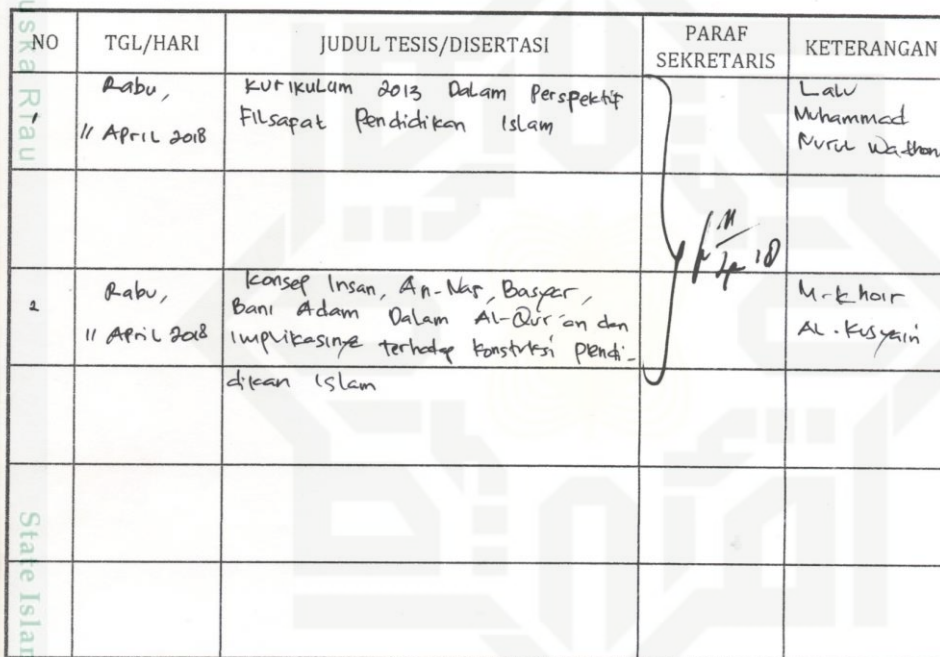 NO TGL/HARI JUDUL TESIS/DISERTASI PARAF SEKRETARIS KETERANGAN
1 Rabu, 11 April 2018
Kurikulum 2013 Dalam Perspektif
Filsafat Pendidikan Islam
Lalu
Muhammad
Nurul Wathon
11/4 18
2 Rabu, 11 April 2018
Konsep Insan, An-Nas, Basyar,
Bani Adam Dalam Al-Qur'an dan
Implikasinya terhadap Konstruksi Pendi-
dikan Islam
M. Khoir
AL-Kusyairi
uska Riau
State Islam